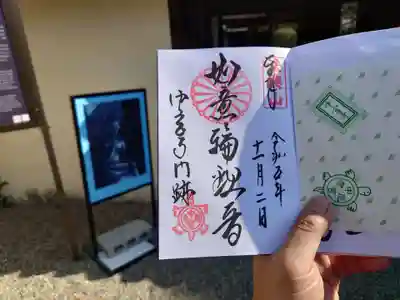 令和五年
十一月二日
如意輪観音
中宮寺門跡